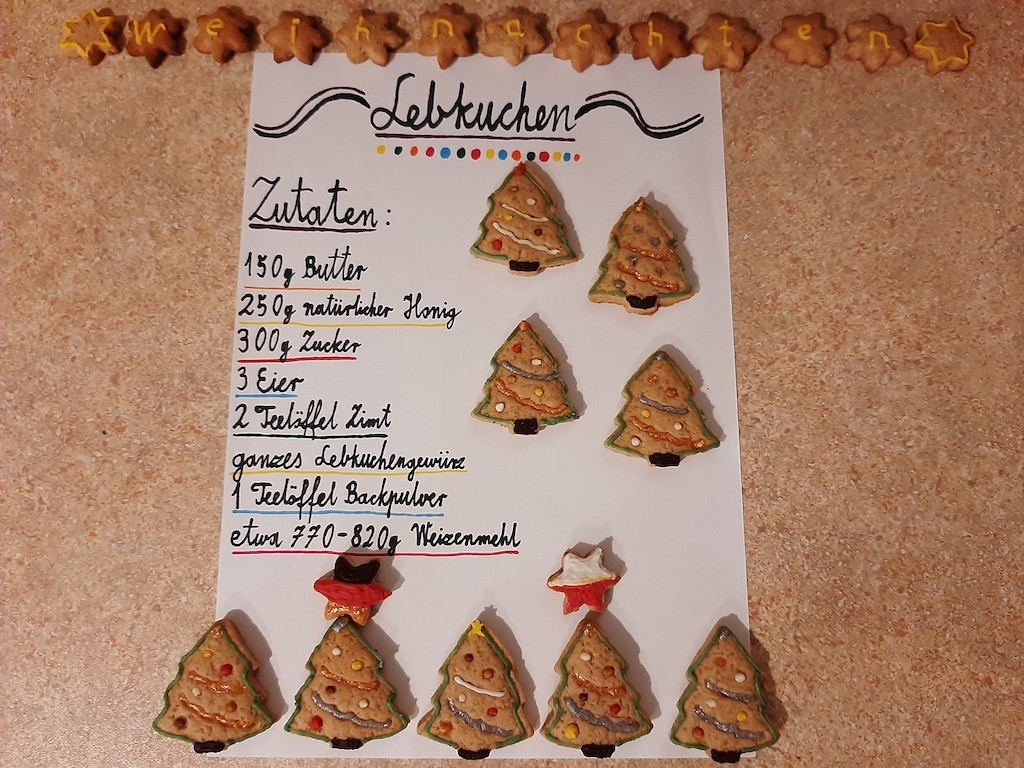 weihnachten
Lebkuchen
Zutaten:
150g Butter
250g natürlicher Honig
300g Zucker
3 Eier
2 Teelöffel Zimt
ganzes Lebkuchengewürz
1 Teelöffel Backpulver
etwa 770-820g Weizenmehl